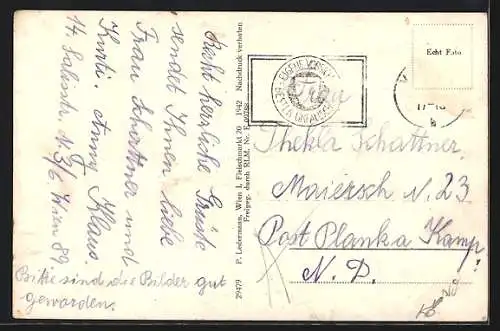 Recht herzliche Grüße
sendt Ihnen liebe
Frau Schattner und
Kurti. Anny Klaus
14. Salmstr. N. 3/6. Wien 89
Bitte sind die Bilder gut
geworden.
29479 P. Ledermann, Wien I, Fleischmarkt 20 1942 Nachdruck verboten
Freigeg. durch RLM. Nr.
Echt Foto
Frau
Thekla Schattner
Maiersch N. 23
Post Planka Kamp
N. D.